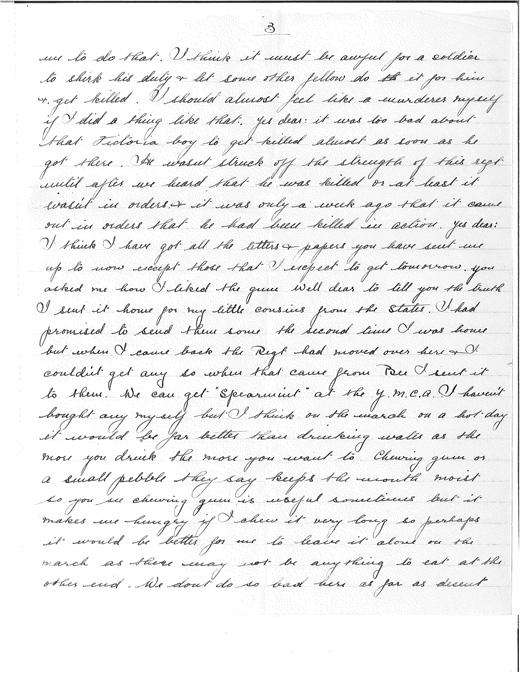 3
me to do that. I think it must be awful for a soldier
to shirk his duty & let some other fellow do it for him
& get killed. I should almost feel like a murderer myself
if I did a thing like that. yes dear: it was too bad about
that Victoria boy to get killed almost as soon as he
got there. He wasnt struck off the strength of this regt
until after we heard that he was killed or at least it
wasn't in orders & it was only a week ago that it came
out in orders that he had been killed in action. yes dear:
I think I have got all the letters & papers you have sent me
up to now except those that I expect to get tomorrow. you
asked me how I liked the gum well dear to tell you the truth
I sent it home for my little cousins from the States. I had
promised to send them some the second time I was home
but when I came back the Regt had moved over here & I
couldn't get any so when that came from I sent it
to them. We can get "Spearmint" at the Y.M.C.A. I haven't
bought any myself but I think on the march on a hot day
it would be far better than drinking water as the
more you drink the more you want to Chewing gum or
a small pebble they say keeps the mouth moist
so you see chewing gum is useful sometimes but it
makes me hungry if I chew it very long so perhaps
it would be better for me to leave it alone on the
march as there may not be anything to eat at the
other end. We dont do so bad here as far as decent